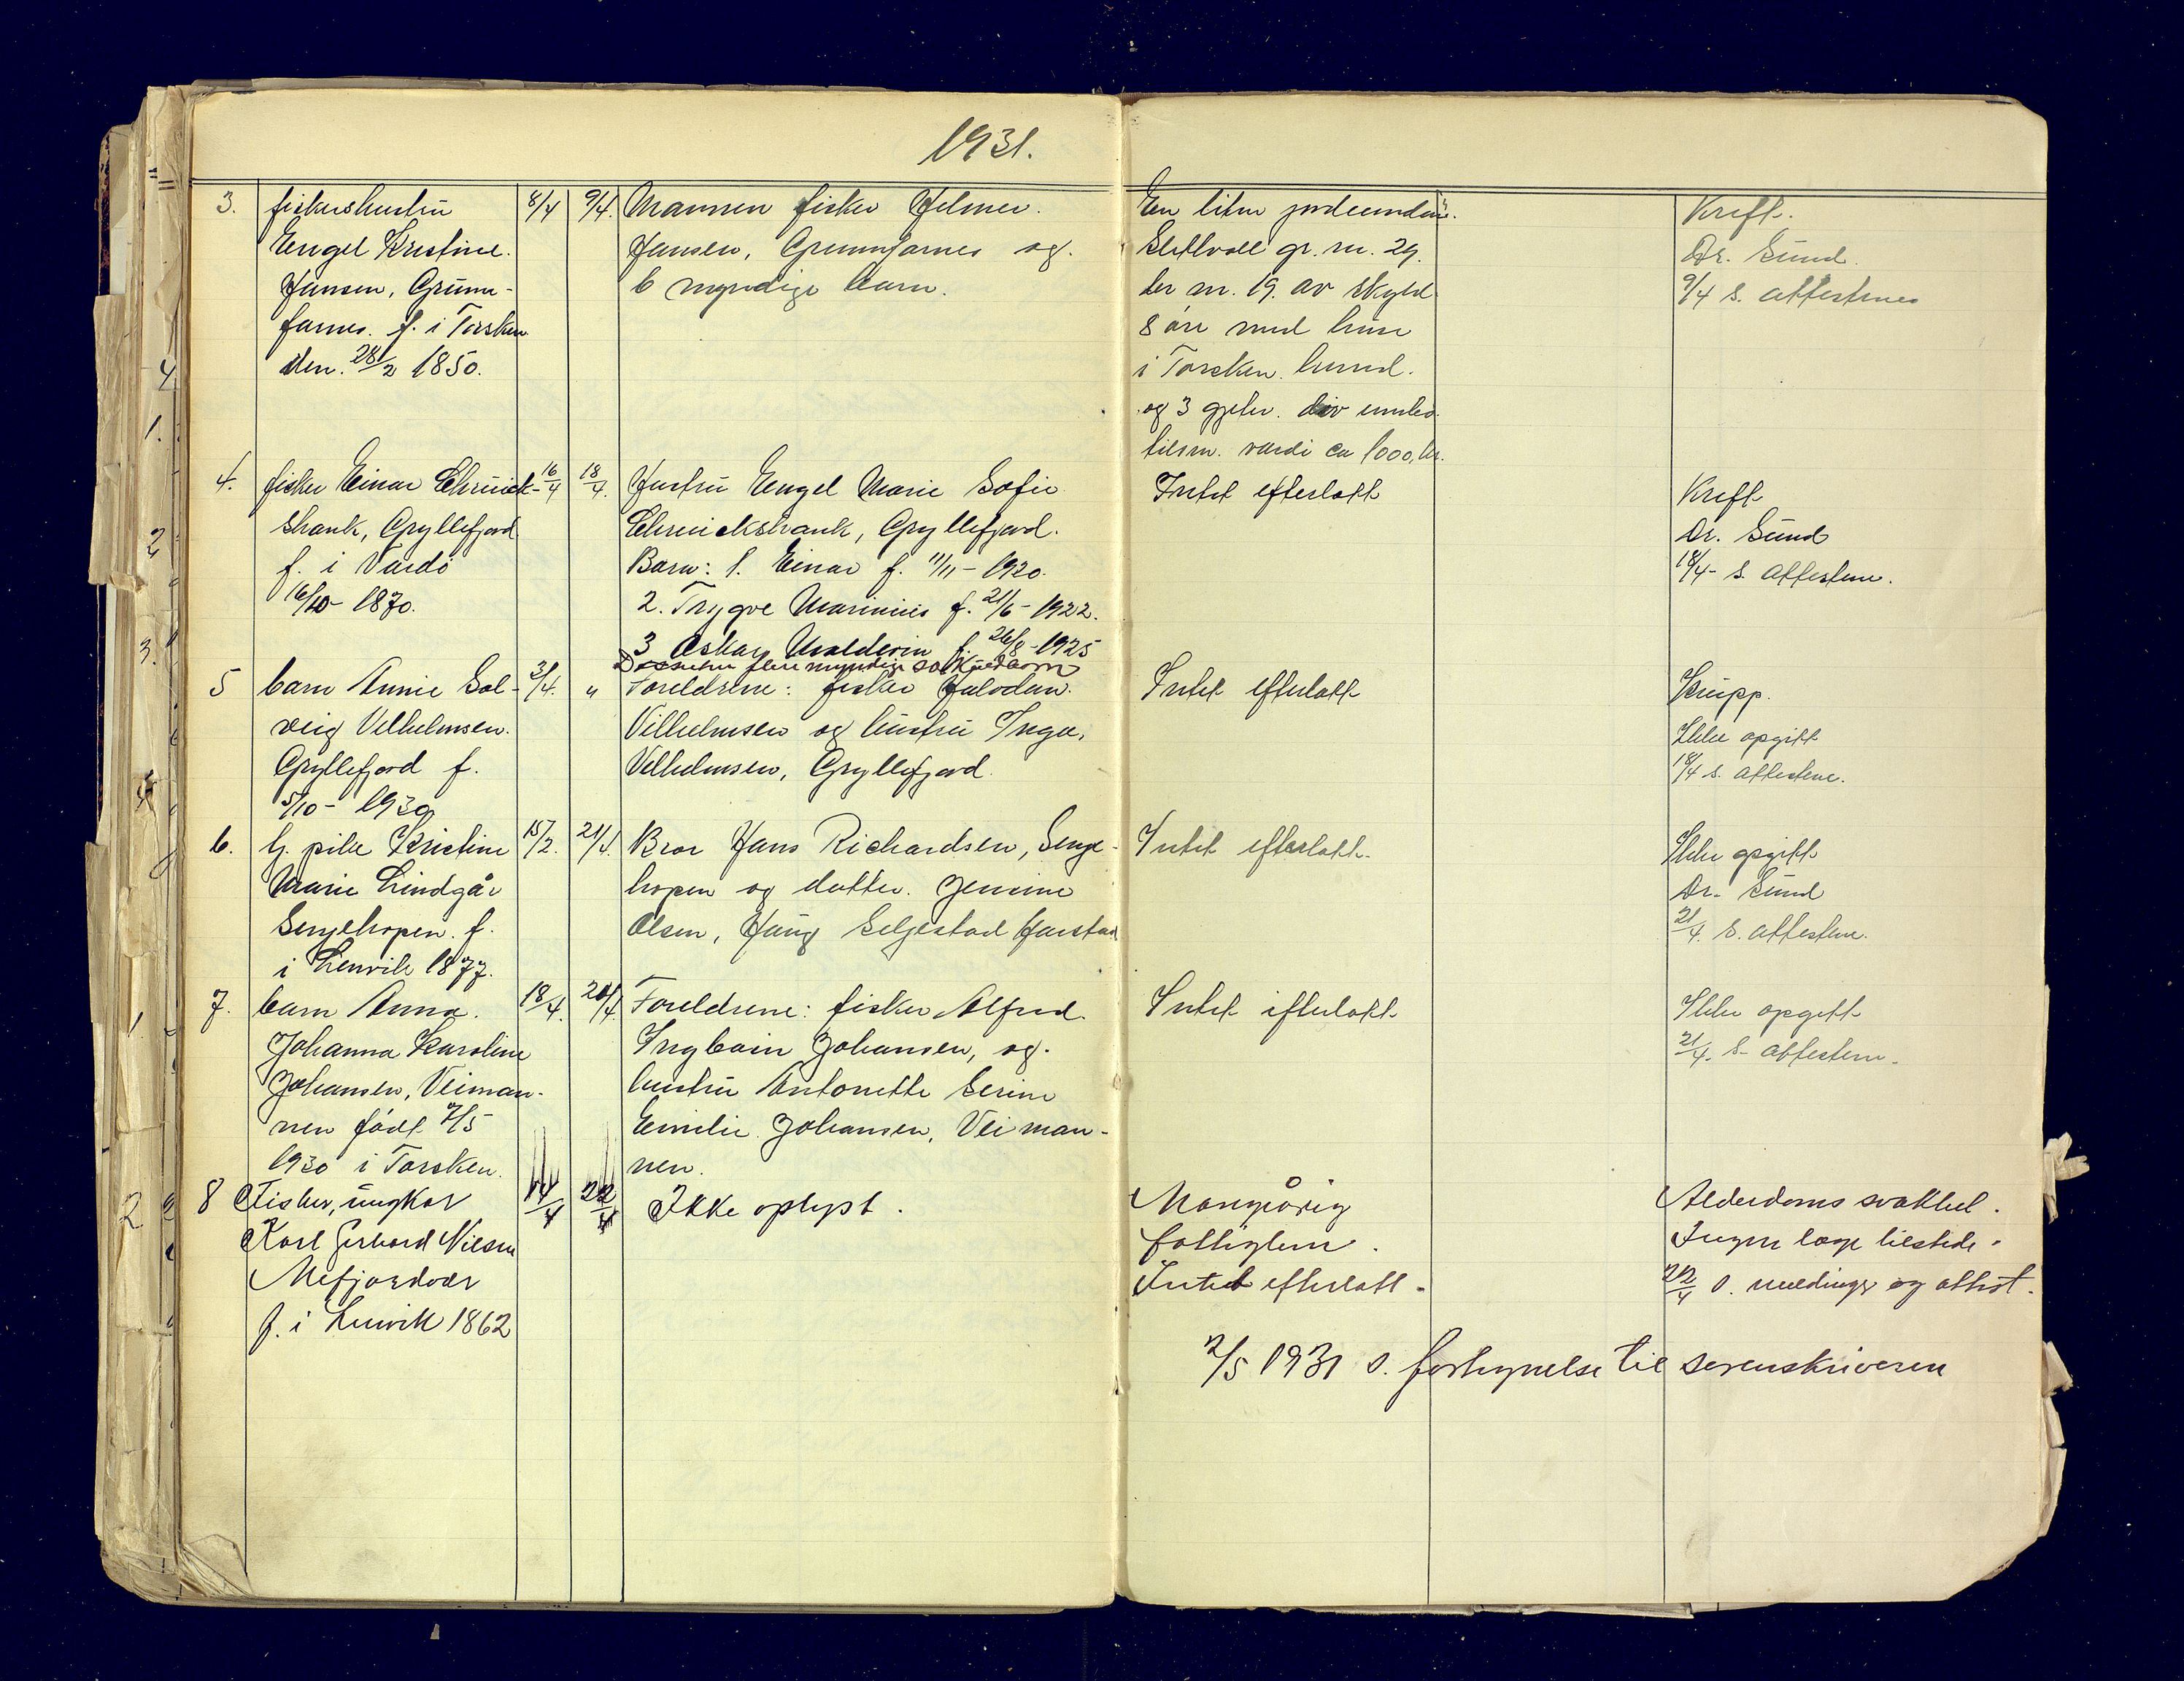 1931.
3. fiskershustru 8/4 9/4. Mannen fisker Hilmer.
Engel Kristine. Jansen, Grunnfarnes og.
Jansen, Grunn- 6 myndige barn.
farnes. f. i Torsken
den. 28/2 1850.
En liten jordeiendom.
Slettvoll gr. nr. 29.
br nr. 19. av skyld
8 øre med huse
i Torsken herred.
og 3 gjeter. div innbo
tilsm. verdi ca 1000, kr.
Kreft.
Dr. Sund.
9/4 s. attestene
4. fisker Einar Chruick- 16/4 18/4. Hustru Engel Marie Sofie
shank, Gryllefjord Chruickshank, Gryllefjord.
f. i Vardø Barn: 1. Einar f. 11/11 - 1920.
16/10 - 1870. 2. Trygve Marinius f. 21/6 - 1922.
3 Oskar f. 26/8 - 1925
Dessuten flere myndige
Intet efterlatt
Kreft
Dr. Sund
18/4 - s. attestene.
5 barn Annie Sol- 3/4. " Foreldrene: fisker Halvdan.
veig Vilhelmsen. Vilhelmsen og hustru Inga.
Gryllefjord f. Vilhelmsen, Gryllefjord.
5/10 - 1930
Intet efterlatt
Krupp.
Ikke opgitt
18/4 s. attestene.
6. g. pike Kristine 15/2. 21/4. Bror Hans Richardsen, Senje-
Marie Lindgår hopen og datter. Jensine
Senjehopen. f. Olsen, Haug Seljestad Harstad
i Lenvik 1877.
Intet efterlatt.
Ikke opgitt
Dr. Sund
21/4. s. attestene.
7. barn Anna. 18/4. 20/4. Foreldrene: fisker Alfred.
Johanna Karoline Ingbain Johansen, og.
Johansen, Veiman- hustru Antonette Serine
nen født 7/5 Emilie Johansen, Veiman-
1930 i Torsken. nen.
Intet efterlatt
Ikke opgitt
21/4. s. attestene.
8 Fisker, ungkar 14/4 22/4 Ikke oplyst.
Karl Gerhard Nilsen
Mefjordvær
f. i Lenvik 1862
Mangeårig
fattiglem.
Intet efterlatt.
Alderdoms svakhet.
Ingen læge tilstede.
22/4 s. meldinger og attest.
2/5 1931 s. fortegnelse til sorenskriveren